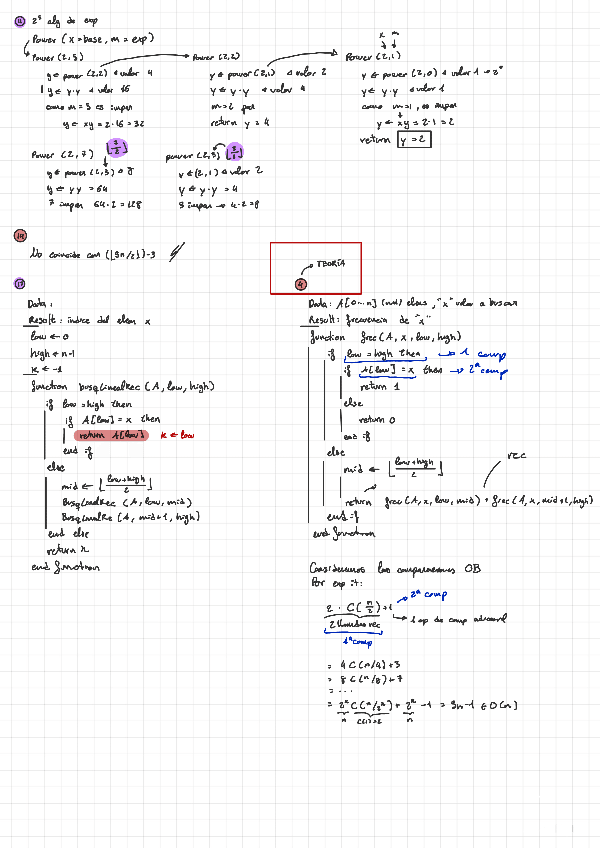 2º alg de exp
Power (x = base, m = exp)
Power (2,5)
y ← power (2,2) → valor 4
y ← y·y → valor 16
como m = 5 es impar
y ← xy = 2·16 = 32
Power (2,2)
y ← power (2,1) → valor 2
y ← y·y → valor 4
m = 2 par
return y = 4
x m
Power (2,1)
y ← power (2,0) → valor 1 → 2º
y ← y·y → valor 1
como m=1, es impar
y ← xy = 2·1 = 2
return y = 2
Power (2,7)
y ← power (2,3) → 8
y ← y·y = 64
7 impar 64·2 = 128
power (2,3)
y ← (2,1) → valor 2
y ← y·y = 4
3 impar → 4·2 = 8
No coincide con (⌊3n/2⌋)-3
TEORÍA
4
Data:
Result: índice del elem x
low ← 0
high ← n-1
k ← -1
function busqLinealRec (A, low, high)
if low = high then
if A[low] = x then
return A[low] k ← low
end if
else
mid ← ⌊low+high/2⌋
BusqLinealRec (A, low, mid)
BusqLinealRec (A, mid+1, high)
end else
return x
end function
Data: A[0...n] (n+1) elems, "x" valor a buscar
Result: frecuencia de "x"
function frec (A, x, low, high)
if low = high then → 1 comp
if A[low] = x then → 2ª comp
return 1
else
return 0
end if
else
mid ← ⌊low+high/2⌋
rec
return frec (A, x, low, mid) + frec (A, x, mid+1, high)
end if
end function
Consideremos las comparaciones OB
Por exp it:
2ª comp
2 · C(n/2) + 1
2 llamadas rec
1 op de comp adicional
1ª comp
= 4 C (n/4) + 3
= 8 C (n/8) + 7
= ...
= 2ᵏ C (n/2ᵏ) + 2ᵏ - 1 = 3n-1 ∈ O(n)
n C(1)=2 n